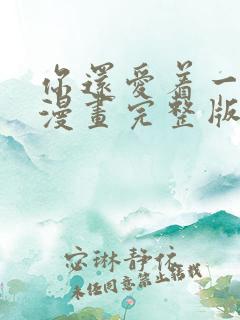 你還愛着一
漫畫完整版
宓琳静依
未任同意禁止转载